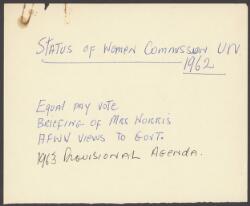 STATUS OF WOMEN COMMISSION UN
1962
EQUAL PAY VOTE
BRIEFING OF MRS NORRIS
AFWV VIEWS TO GOVT.
1963 PROVISIONAL AGENDA.